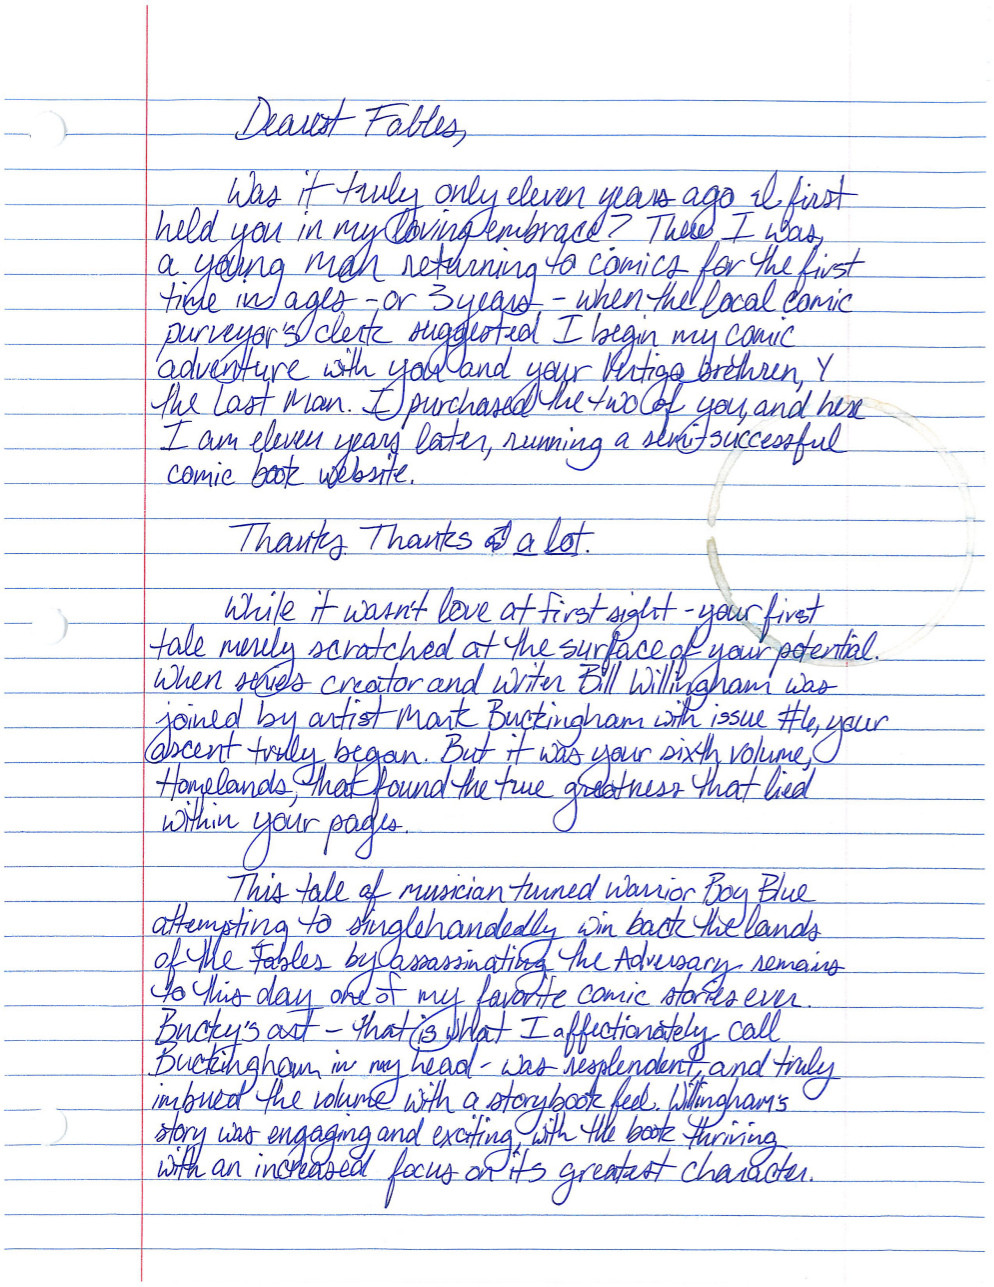 Dearest Fables,
Was it truly only eleven years ago I first
held you in my loving embrace? There I was,
a young man returning to comics for the first
time in ages - or 3 years - when the local comic
purveyor's clerk suggested I begin my comic
adventure with you and your Vertigo brethren, Y
the Last Man. I purchased the two of you, and here
I am eleven years later, running a semi-successful
comic book website.
Thanks. Thanks a lot.
While it wasn't love at first sight - your first
tale merely scratched at the surface of your potential.
When series creator and writer Bill Willingham was
joined by artist Mark Buckingham with issue #6, your
ascent truly began. But it was your sixth volume,
Homelands, that found the true greatness that lied
within your pages.
This tale of musician turned warrior Boy Blue
attempting to singlehandedly win back the lands
of the Fables by assassinating the Adversary remains
to this day one of my favorite comic stories ever.
Bucky's art - that is what I affectionately call
Buckingham in my head - was resplendent, and truly
imbued the volume with a storybook feel. Willingham's
story was engaging and exciting, with the book thriving
with an increased focus on its greatest character.